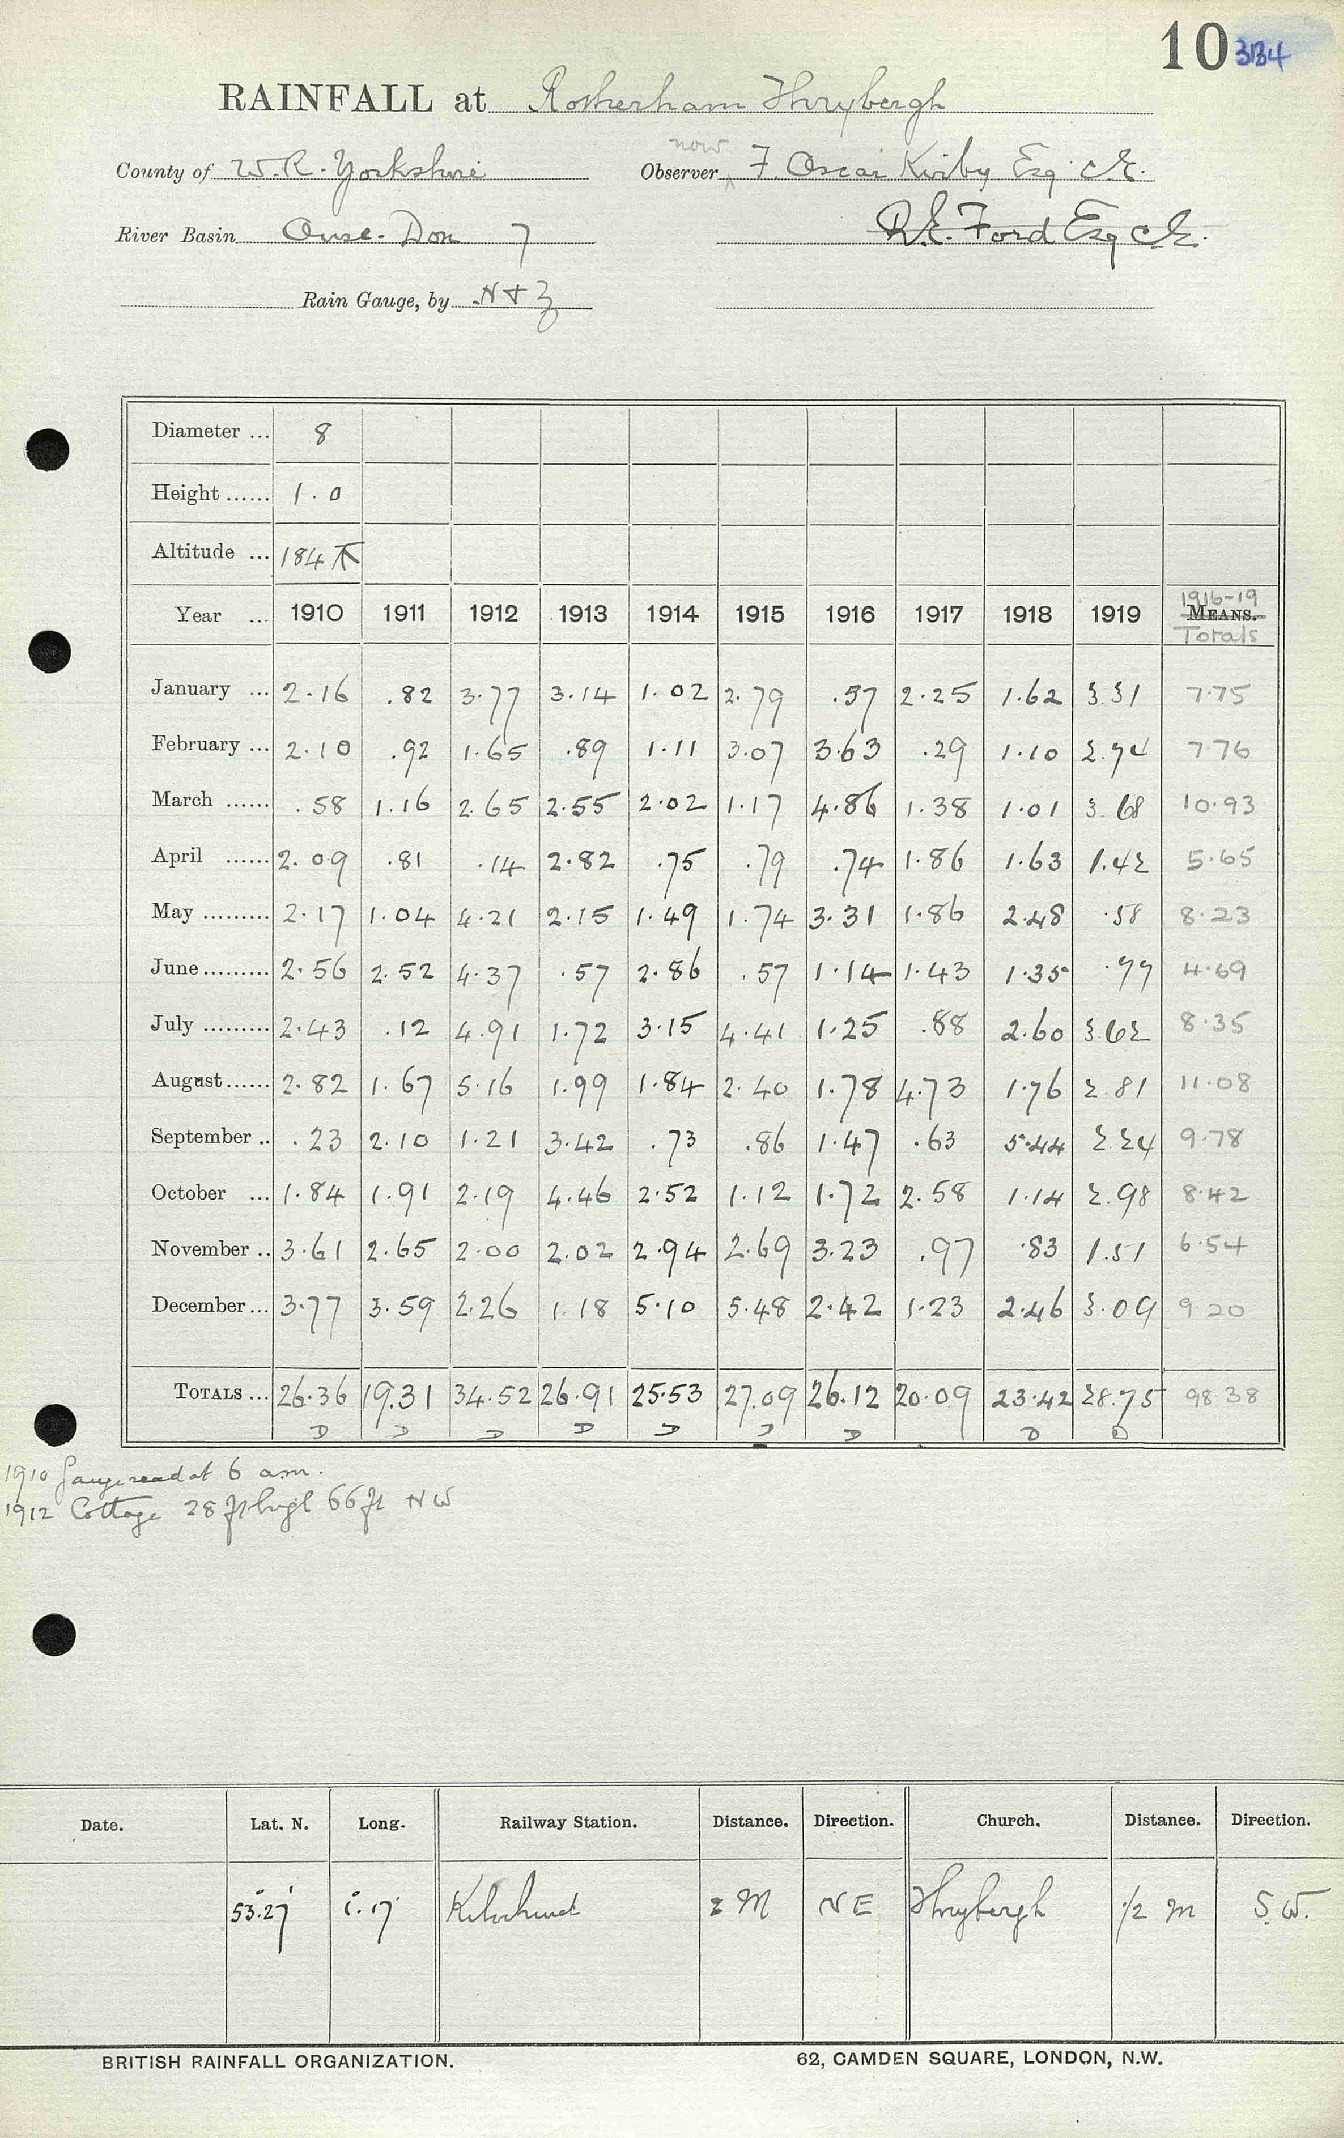 10 384
RAINFALL at Rotherham Thrybergh
County of W.R. Yorkshire Observer now F Oscar Kirby Esq C.E.
River Basin Ouse. Don 7 R.E. Ford Esq C.E.
Rain Gauge, by N & Z
Diameter ... 8
Height ...... 1.0
Altitude ... 184
Year ... 1910 1911 1912 1913 1914 1915 1916 1917 1918 1919 1916-19 MEANS. Totals
January ... 2.16 .82 3.77 3.14 1.02 2.79 .57 2.25 1.62 3.31 7.75
February ... 2.10 .92 1.65 .89 1.11 3.07 3.63 .29 1.10 2.74 7.76
March ...... .58 1.16 2.65 2.55 2.02 1.17 4.86 1.38 1.01 3.68 10.93
April ...... 2.09 .81 .14 2.82 .75 .79 .74 1.86 1.63 1.42 5.65
May ......... 2.17 1.04 4.21 2.15 1.49 1.74 3.31 1.86 2.48 .58 8.23
June ......... 2.56 2.52 4.37 .57 2.86 .57 1.14 1.43 1.35 .77 4.69
July ......... 2.43 .12 4.91 1.72 3.15 4.41 1.25 .88 2.60 3.62 8.35
August ...... 2.82 1.67 5.16 1.99 1.84 2.40 1.78 4.73 1.76 2.81 11.08
September .. .23 2.10 1.21 3.42 .73 .86 1.47 .63 5.44 2.24 9.78
October ... 1.84 1.91 2.19 4.46 2.52 1.12 1.72 2.58 1.14 2.98 8.42
November .. 3.61 2.65 2.00 2.02 2.94 2.69 3.23 .97 .83 1.51 6.54
December ... 3.77 3.59 2.26 1.18 5.10 5.48 2.42 1.23 2.46 3.09 9.20
TOTALS ... 26.36 19.31 34.52 26.91 25.53 27.09 26.12 20.09 23.42 28.75 98.38
D D D D D D D D D
1910 Gauge read at 6 am.
1912 Cottage 28 ft high 66 ft NW
Date. Lat. N. Long. Railway Station. Distance. Direction. Church. Distance. Direction.
53.27 1.17 Kilnhurst 2 M NE Thrybergh 1/2 m S.W.
BRITISH RAINFALL ORGANIZATION. 62, CAMDEN SQUARE, LONDON, N.W.